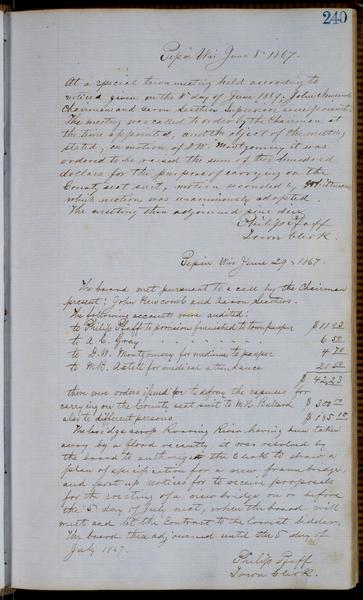 240
Pepin Wis June 8th 1867.
At a special town meeting held according to
notice given on the 8th day of June 1867. John Newcomb
Chairman and Aaron Seathers Supervisor were present.
The meeting was called to order by the Chairman at
the time appointed, and the object of the meeting
stated, on motion of D. W. Montgomery it was
ordered to be raised the sum of two hundred
dollars for the purpose of carrying on the
County seat suit, motion seconded by
which motion was unanimously adopted.
The meeting then adjourned sine die.
Philip Pfaff
Town Clerk.
Pepin Wis June 29th 1867.
The board met pursuant to a call by the Chairman
present: John Newcomb and Aaron Seathers.
The following accounts were audited:
to Philip Pfaff to provisions furnished to town pauper $ 11 63
to A. C. Gray 6 50
to D. W. Montgomery for medicine to pauper 4 20
to M. B. Axtell for medical attendance 20 00
$ 42,23
there were orders issued for to defray the expenses for
carrying on the County seat suit to Bullard $ 300 00
also to different persons $ 135 10
The bridge across Roaring River having been taken
away by a flood recently it was resolved by
the board to authorize the Clerk to draw a
plan of specification for a new frame bridge,
and post up notices for to receive proposals
for the erecting of a new bridge on or before
the 5th day of July next, when the board will
meet and let the Contract to the lowest bidder.
The board then adjourned until the 5th day of
July 1867.
Philip Pfaff
Town Clerk.